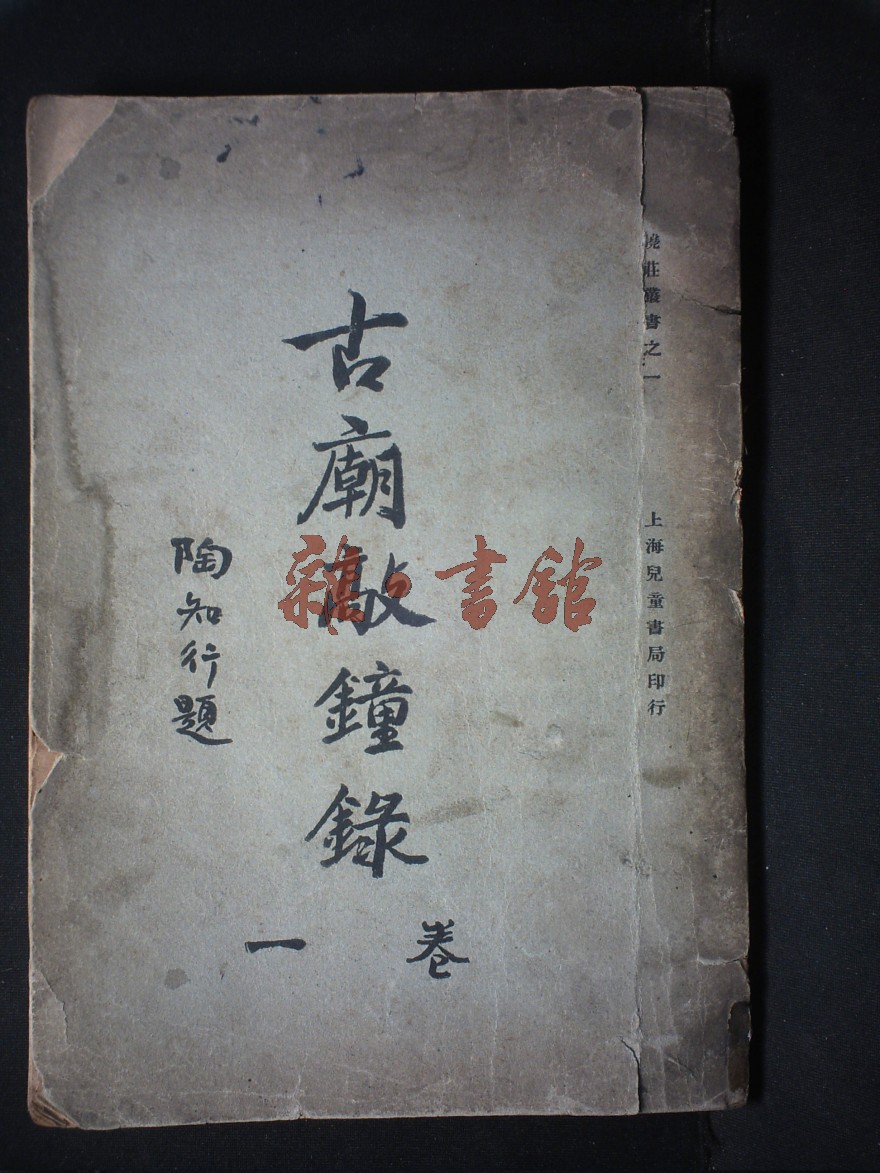 曉莊叢書之一
上海兒童書局印行
古廟敲鐘錄
卷一
陶知行題
雜·書館